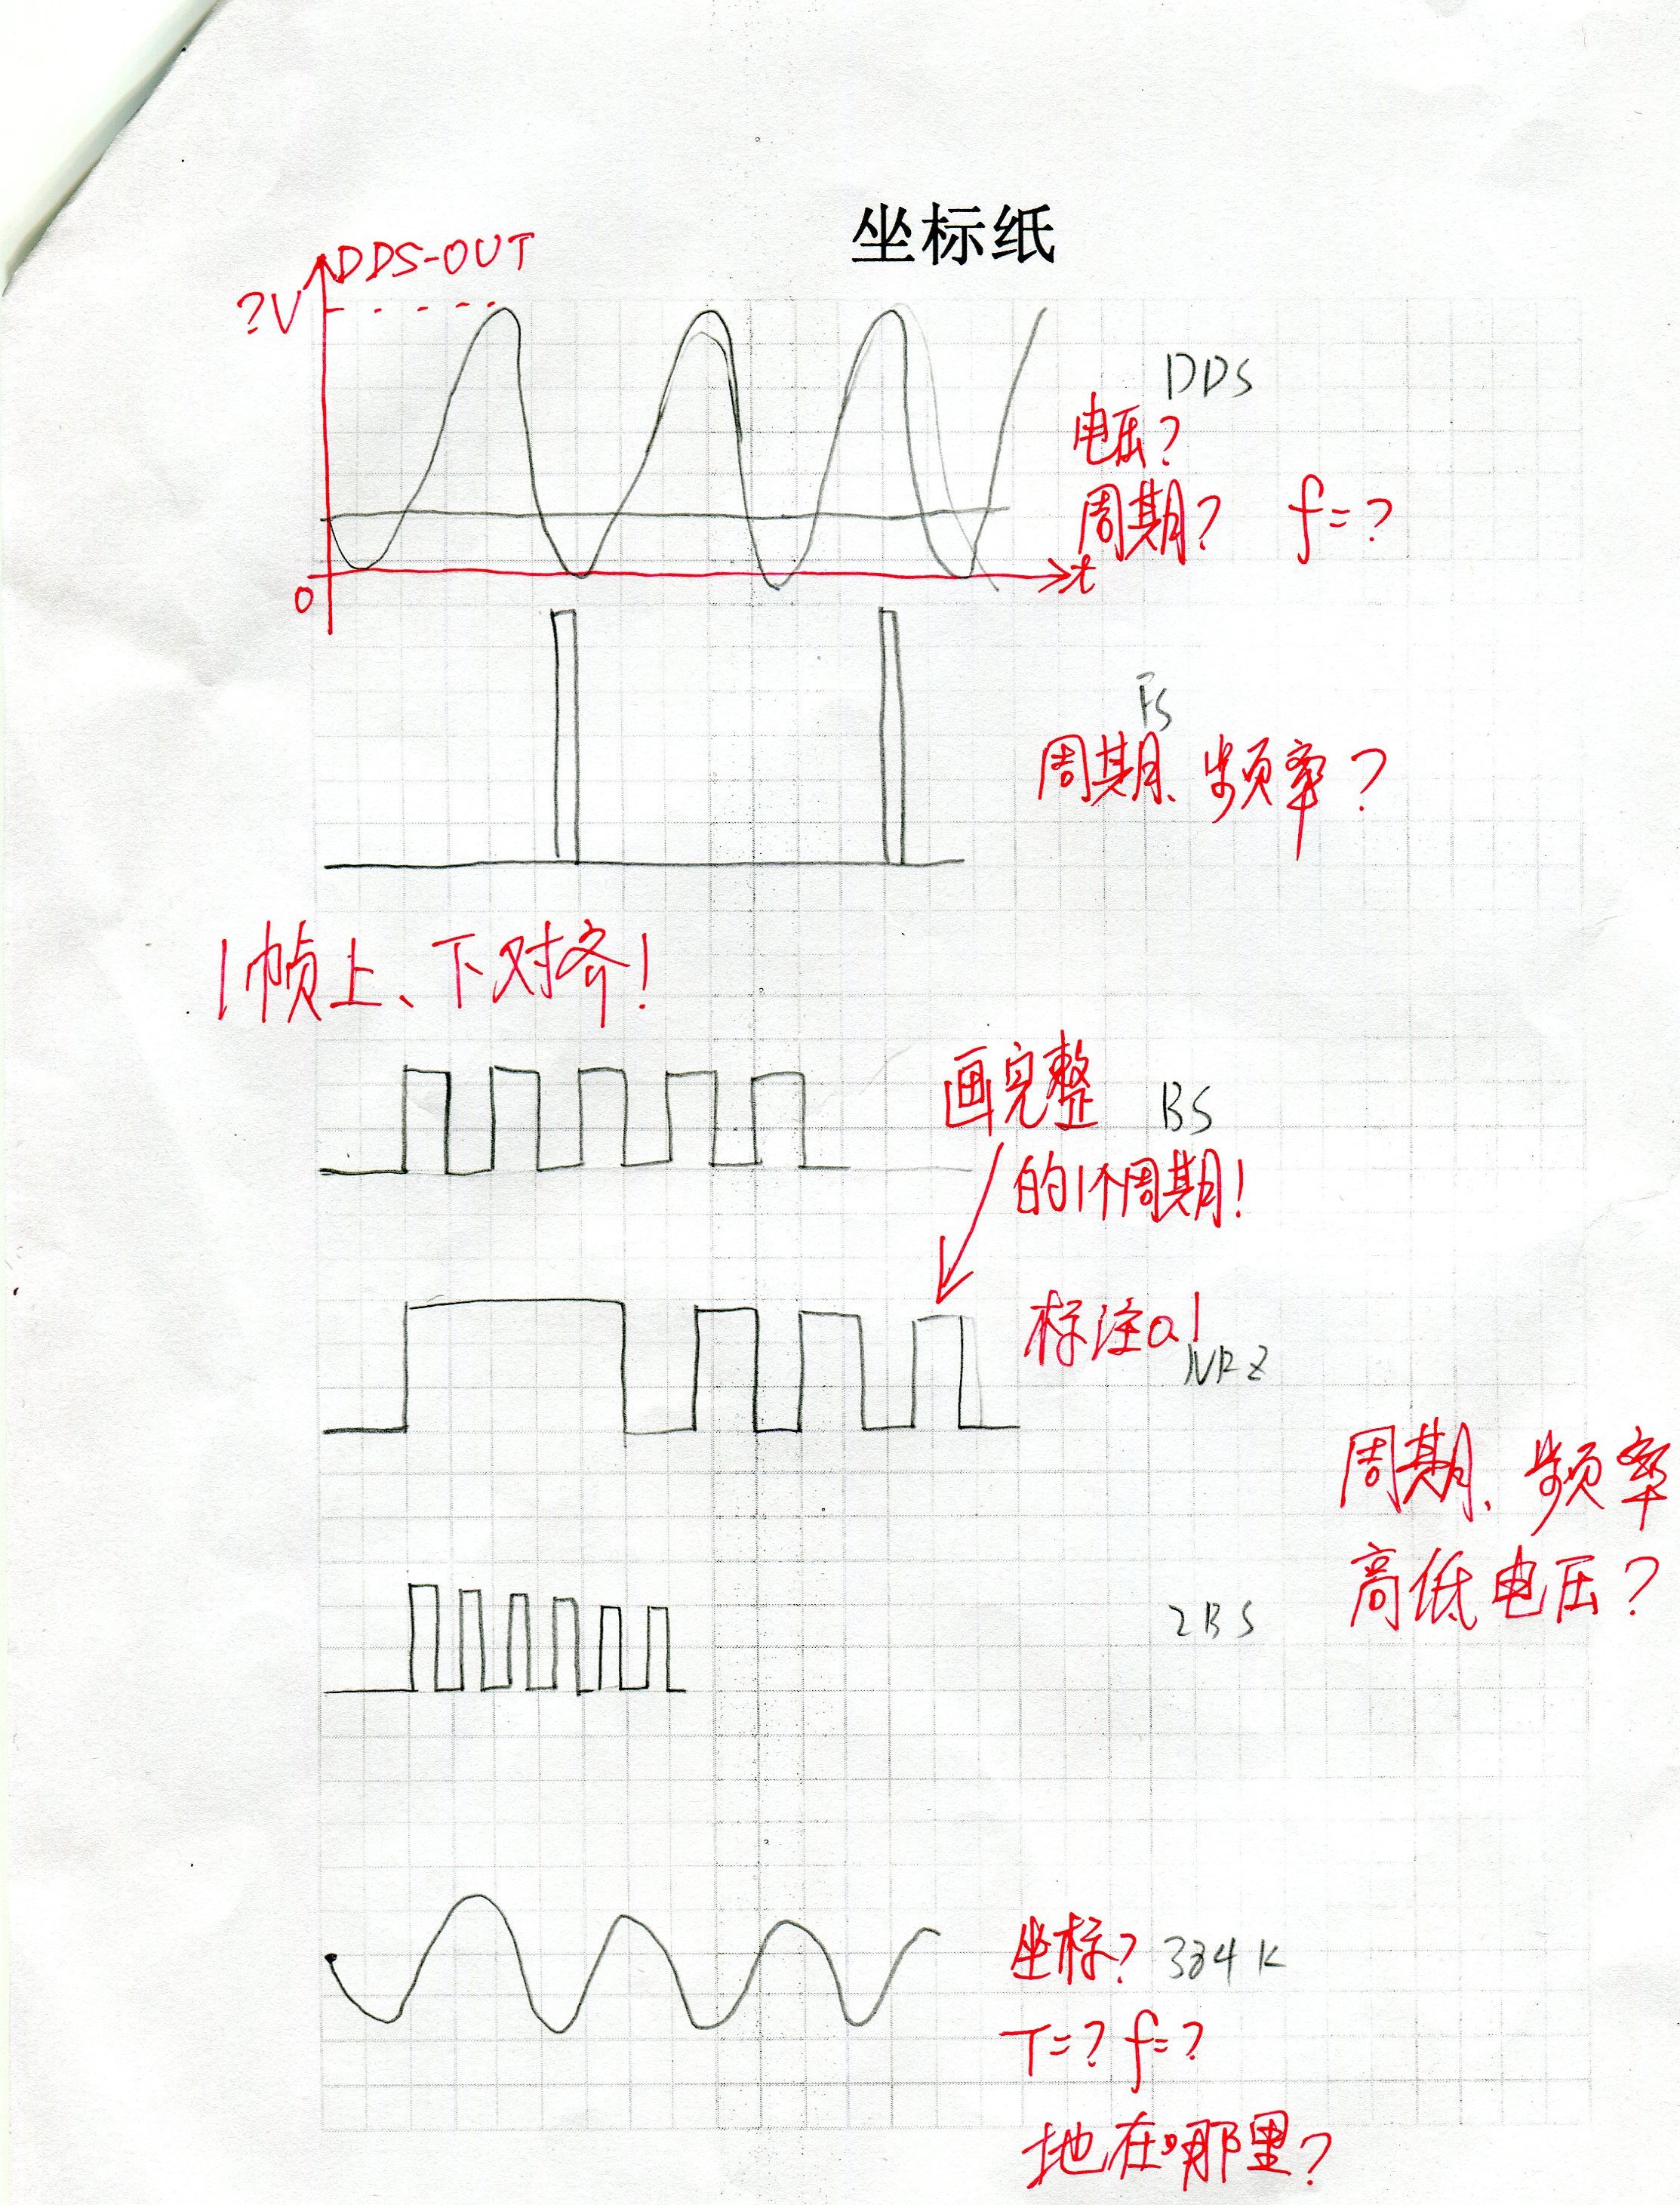 坐标纸
DDS-OUT
?V
DDS
电压?
周期? f=?
t
0
FS
周期、频率?
1帧上、下对齐!
画完整
BS
的1个周期!
标注01
NRZ
周期、频率
高低电压?
2BS
坐标? 384K
T=? f=?
地在哪里?